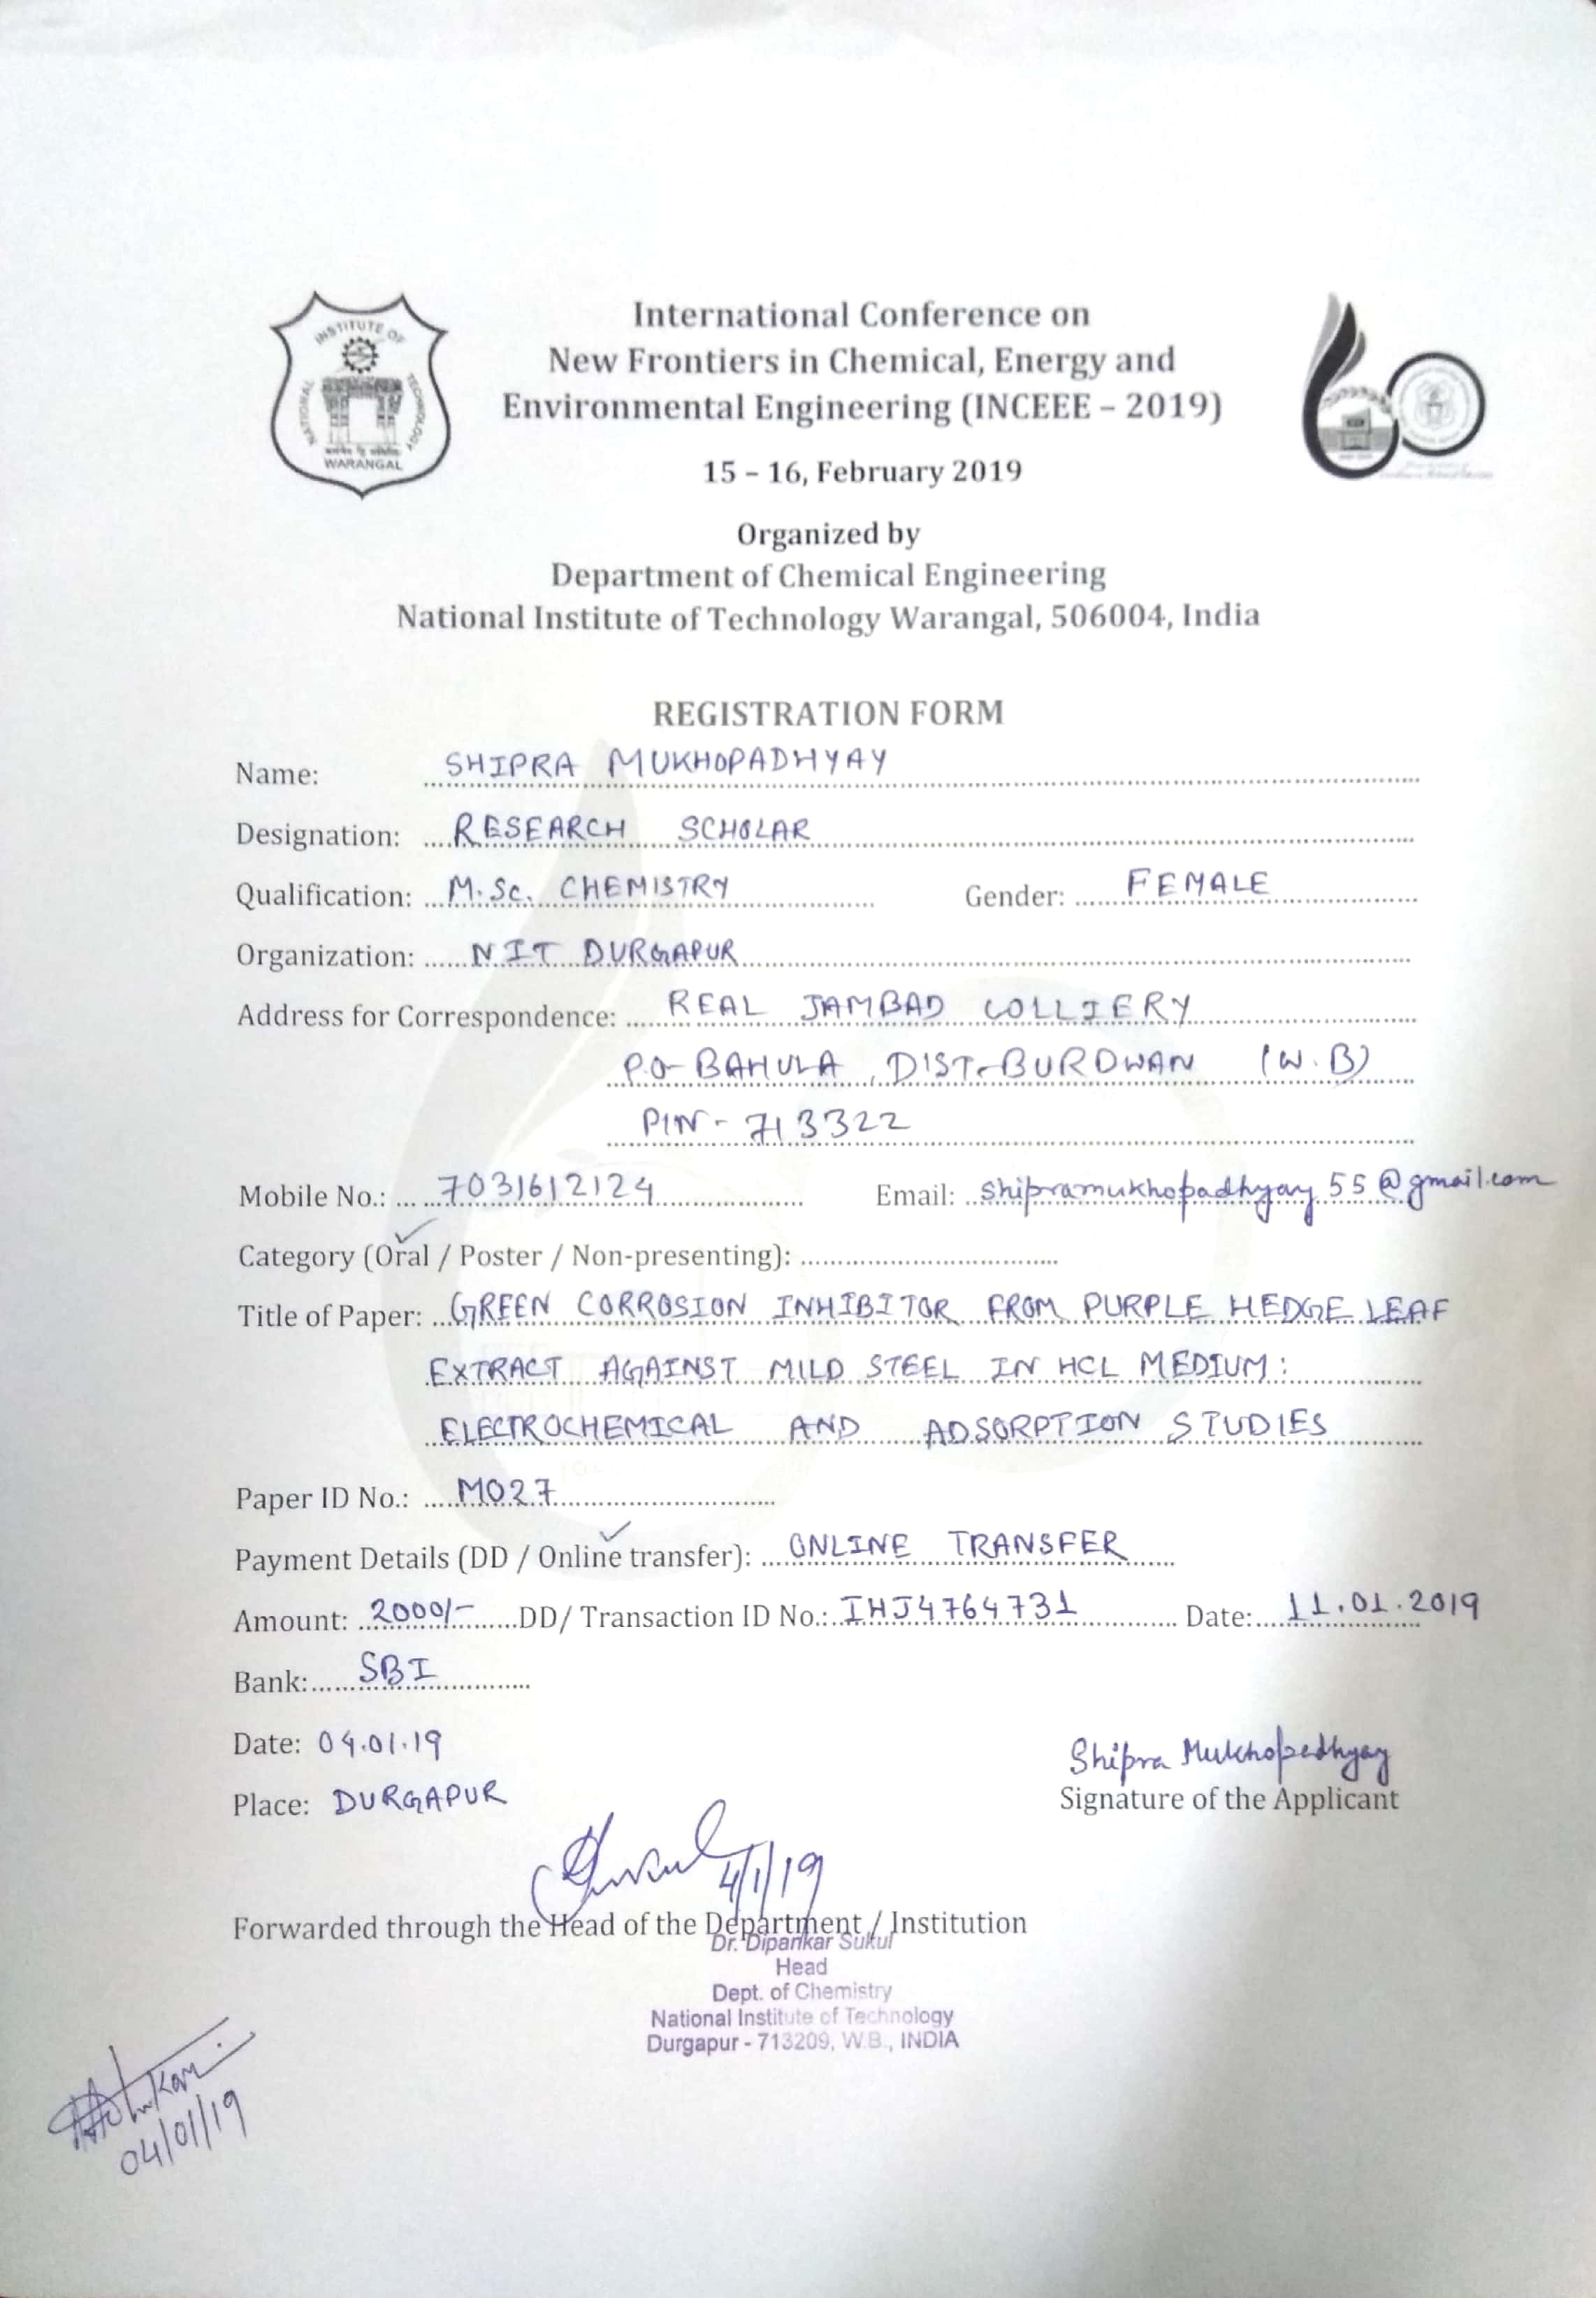 INSTITUTE OF
NATIONAL
TECHNOLOGY
WARANGAL
International Conference on
New Frontiers in Chemical, Energy and
Environmental Engineering (INCEEE – 2019)
15 – 16, February 2019
Organized by
Department of Chemical Engineering
National Institute of Technology Warangal, 506004, India
REGISTRATION FORM
Name: SHIPRA MUKHOPADHYAY
Designation: RESEARCH SCHOLAR
Qualification: M.Sc. CHEMISTRY Gender: FEMALE
Organization: NIT DURGAPUR
Address for Correspondence: REAL JAMBAD COLLIERY
P.O- BAHULA, DIST-BURDWAN (W.B)
PIN- 713322
Mobile No.: 7031612124 Email: shipramukhopadhyay55@gmail.com
Category (Oral / Poster / Non-presenting):
Title of Paper: GREEN CORROSION INHIBITOR FROM PURPLE HEDGE LEAF
EXTRACT AGAINST MILD STEEL IN HCL MEDIUM:
ELECTROCHEMICAL AND ADSORPTION STUDIES
Paper ID No.: M027
Payment Details (DD / Online transfer): ONLINE TRANSFER
Amount: 2000/- DD/ Transaction ID No.: IHJ4764731 Date: 11.01.2019
Bank: SBI
Date: 04.01.19
Shipra Mukhopadhyay
Place: DURGAPUR Signature of the Applicant
4/1/19
Forwarded through the Head of the Department / Institution
Dr. Dipankar Sukul
Head
Dept. of Chemistry
National Institute of Technology
Durgapur - 713209, W.B., INDIA
04/01/19